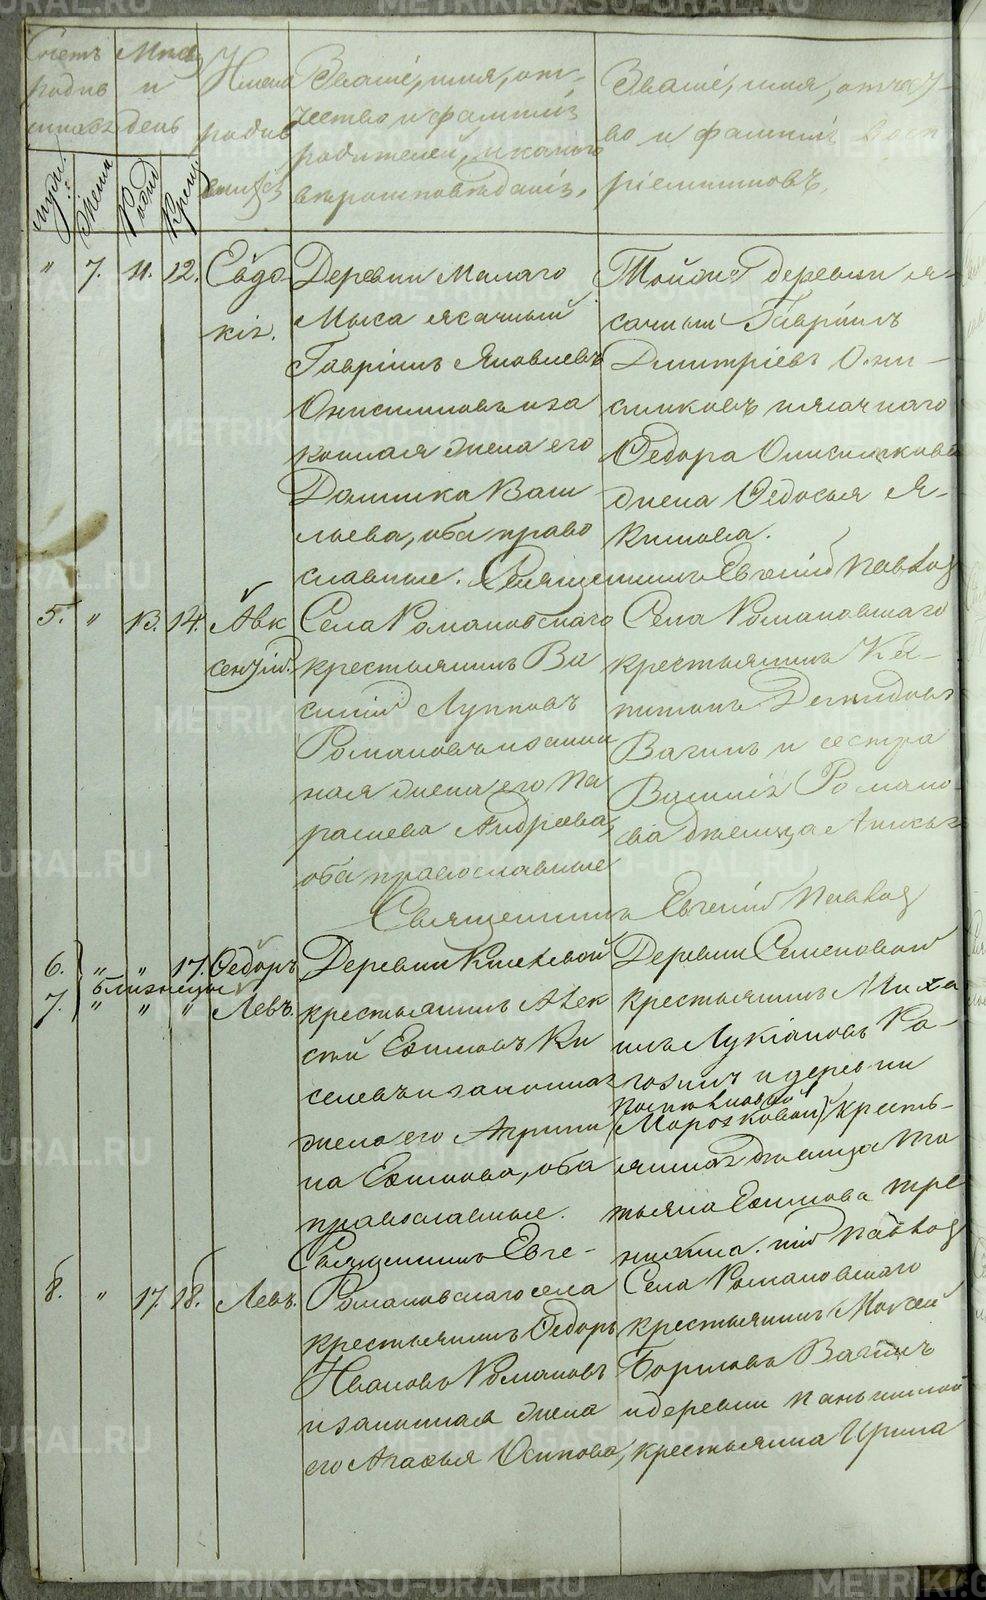 Счетъ родив шихся
Мѣсяцъ и день
Имена родив шихся
Званіе, имя, от-
чество и фамилія
родителей, и какого
вѣроисповѣданія.
Званіе, имя, отчест-
во и фамилія восп
ріемниковъ.
муж.
Жена
Рожд
Крещ
" 7. 11. 12. Евдо-
кія.
Деревни Малаго
Мыса ясачный
Гавріилъ Яковлевъ
Онисимовъ и за
конная жена его
Домника Васи
льева, оба право
славные.
Тойже деревни я-
сачный Гавріилъ
Дмитріевъ Они-
симковъ и ясачнаго
Ѳедора Онисимкова
жена Ѳедосья Я-
кимова.
Священникъ Евгеній
5. " 13. 14. Авк
сентій.
Села Романовскаго
крестьянинъ Ва
силій Лупповъ
Романовъ и закон
ная жена его Па
раскева Андреева,
оба православные
Села Романовскаго
крестьянинъ Ка-
питонъ Демидовъ
Вагинъ и сестра
Василія Романо-
ва дѣвица
Священникъ Евгеній
6. " " 17. Ѳедоръ
близнецы
7. " " " Левъ.
Деревни Киселевой
крестьянинъ Алек
сѣй Ефимовъ Ки
селевъ и законная
жена его Агрипи
на Ефимова, оба
православные.
Деревни Семеновой
крестьянинъ Миха
илъ Лукіановъ Ро-
гозинъ и деревни
(Морозковой) кресть-
янская дѣвица Та
тьяна Ефимова
Священникъ Евге-
ній
8. " 17. 18. Левъ.
Романовскаго села
крестьянинъ Ѳедоръ
Ивановъ Романовъ
и законная жена
его Агафья Осипова,
Села Романовскаго
крестьянинъ Моисей
Борисовъ Вагинъ
и деревни Паньшиной
крестьянка Ирина
METRIKI.GASO-URAL.RU